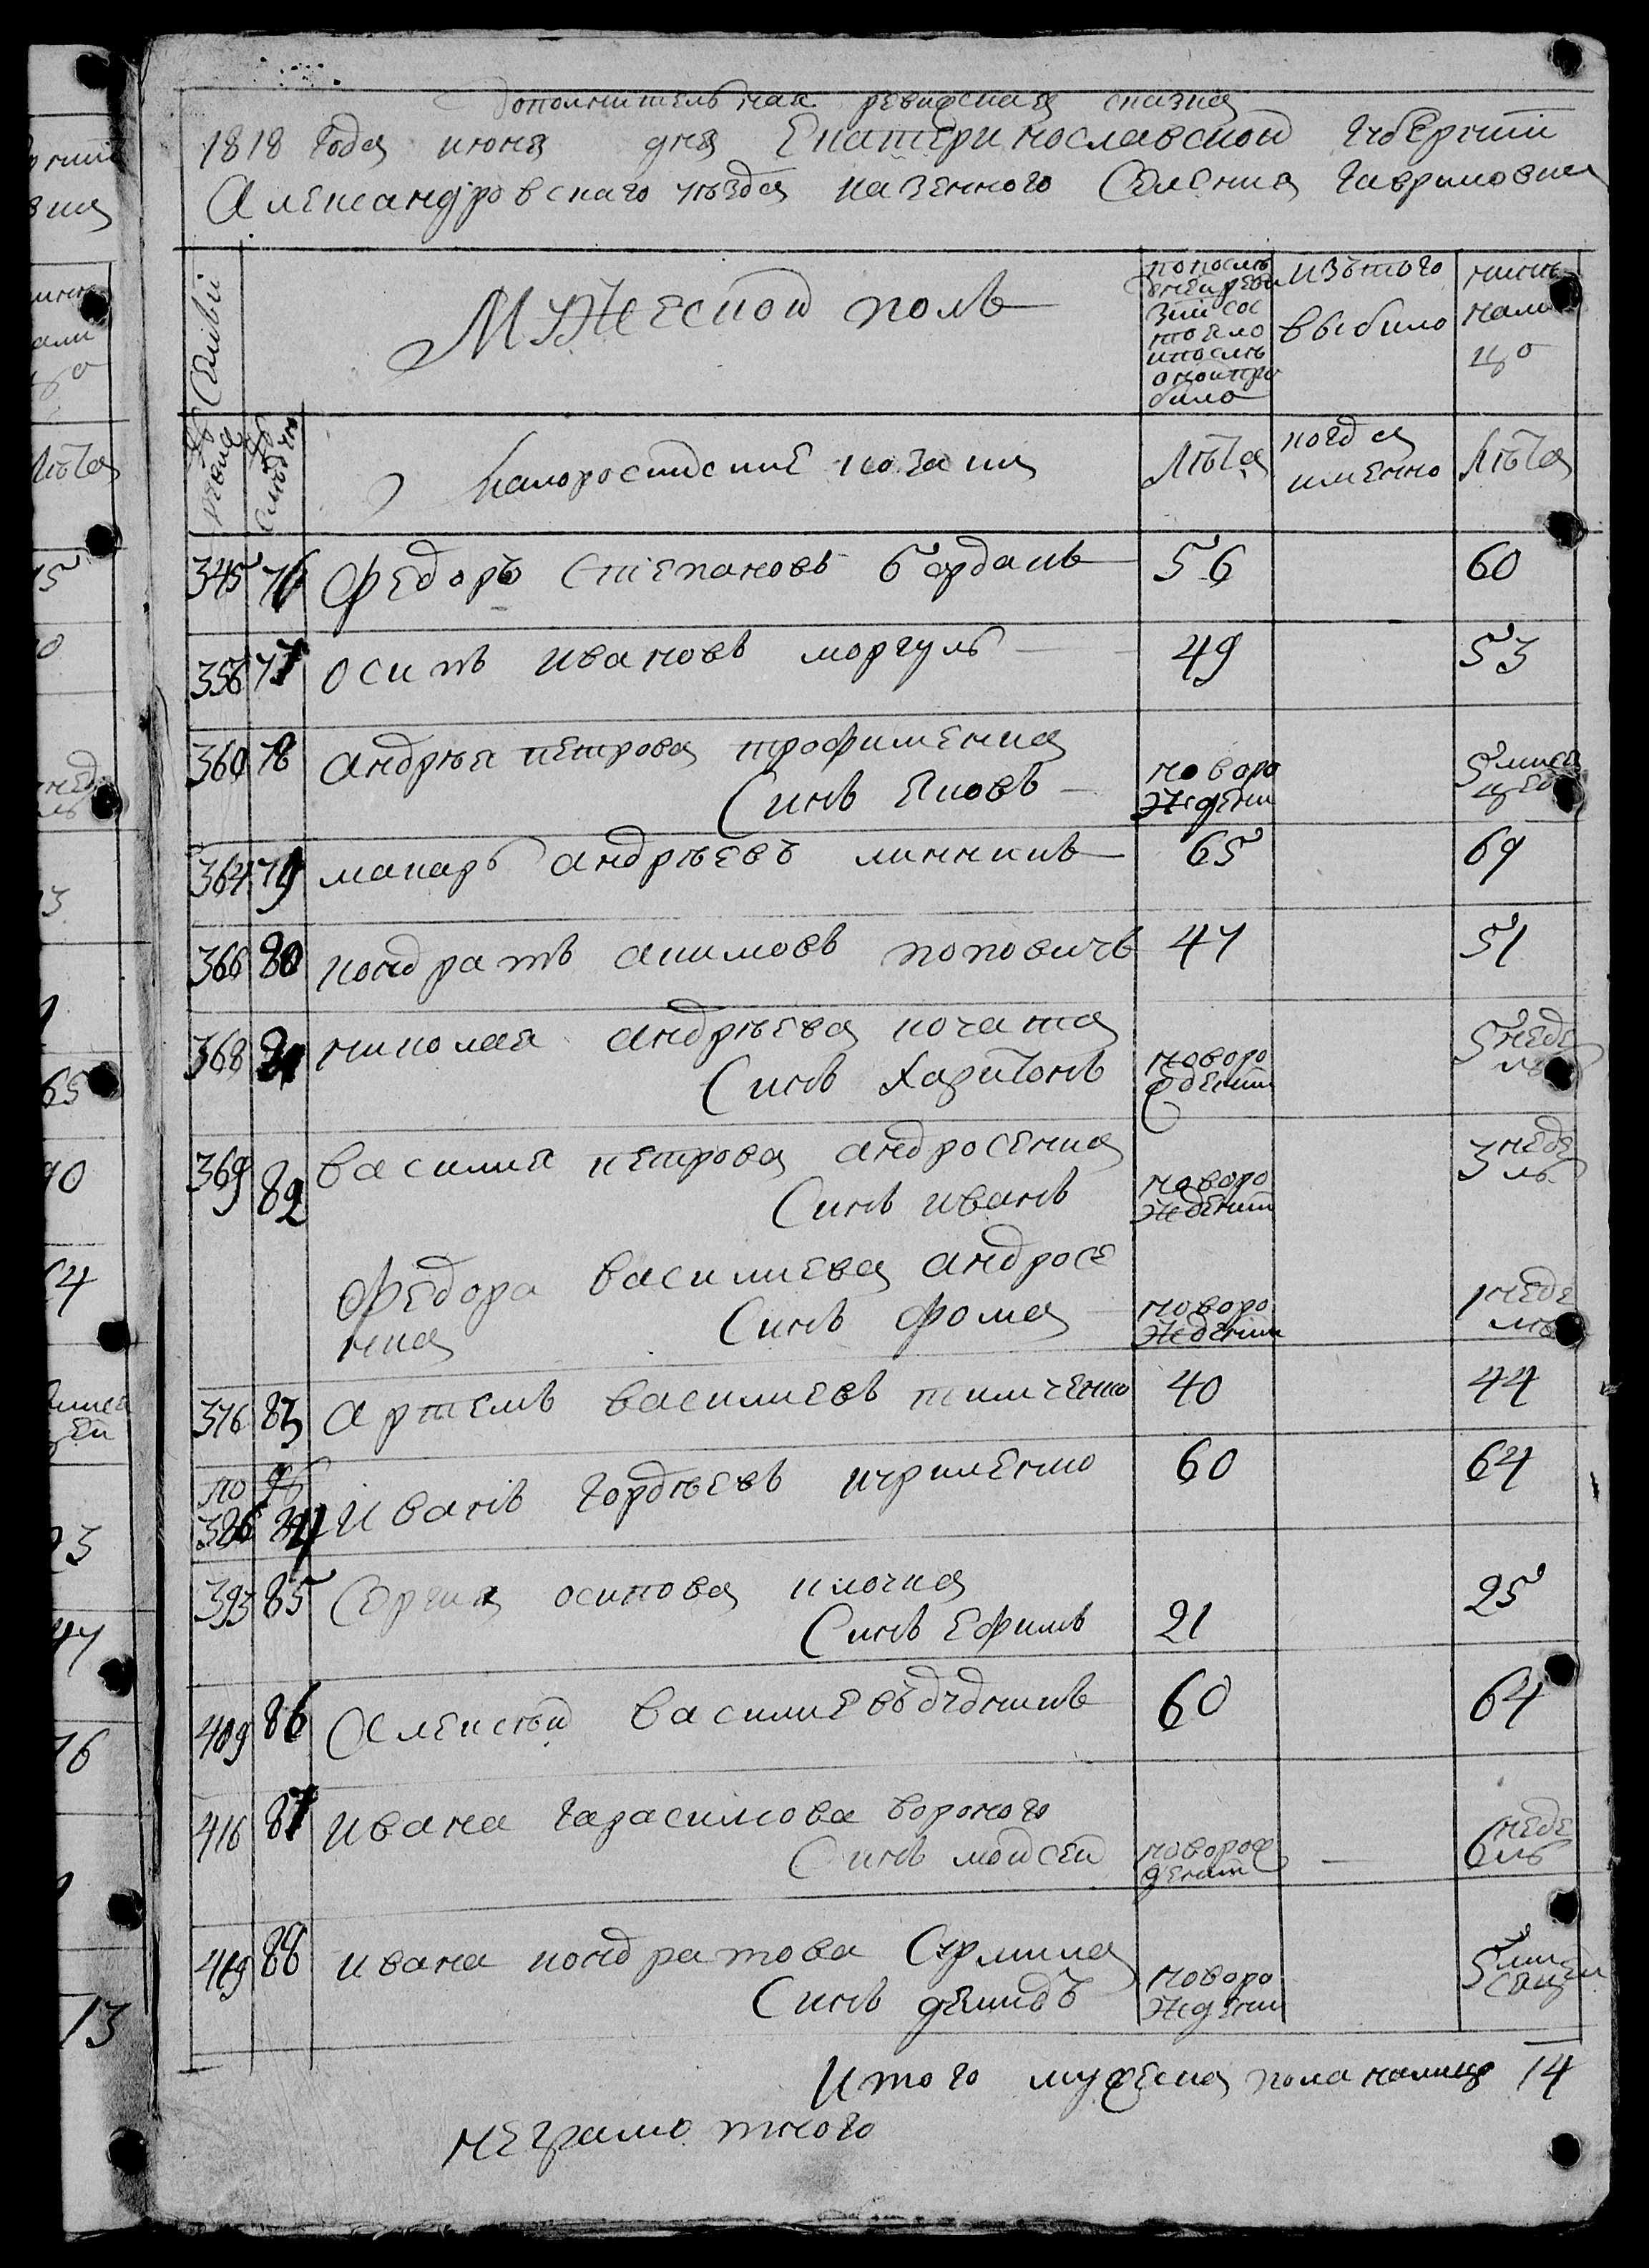 дополнительная ревиская сказка
1818 года июня дня Екатеринославской губернии
Александровскаго уѣзда казенного Селения Гавриловки
Семьи
Мужескои полъ
по послѣ
дней реви
зии сос
тоело
и послѣ
оной при
было
изътого
выбило
нинѣ
нали
цо
Малоросииские козаки
Лѣта
когда
именно
Лѣта
345 76 Федоръ Степановъ бардакъ 56 60
356 77 осипъ ивановъ моргуль 49 53
360 78 андрѣя петрова трофименка
Синъ Яковъ новоро
ждени 5 мися
цей
364 79 макаръ андрѣевъ линникъ 65 69
366 80 кондратъ акимовъ поповичъ 47 51
368 81 николая андрѣева кочата
Синъ Харитонъ новоро
жденни 5 неде
ль
369 82 василия петрова андросенка
Синъ иванъ новоро
жденни 3 неде
ль
Федора василиева андросе
нка Синъ фома новоро
жденни 1 неде
лѣ
376 83 артемъ василиевъ тимченко 40 44
по
386 84 иванъ гордѣевъ куриленко 60 64
393 85 Сергия осипова клочка
Синъ Ефимъ 21 25
409 86 Алексѣй василиевъ дудникъ 60 64
416 87 ивана гарасимова вороного
Синъ мойсей новорож
дении 6 неде
ль
419 88 ивана кондратова Сурмила
Синъ демидъ новоро
ждени 5 ми
сецей
Итого мужеска пола налицо 14
неграмотного